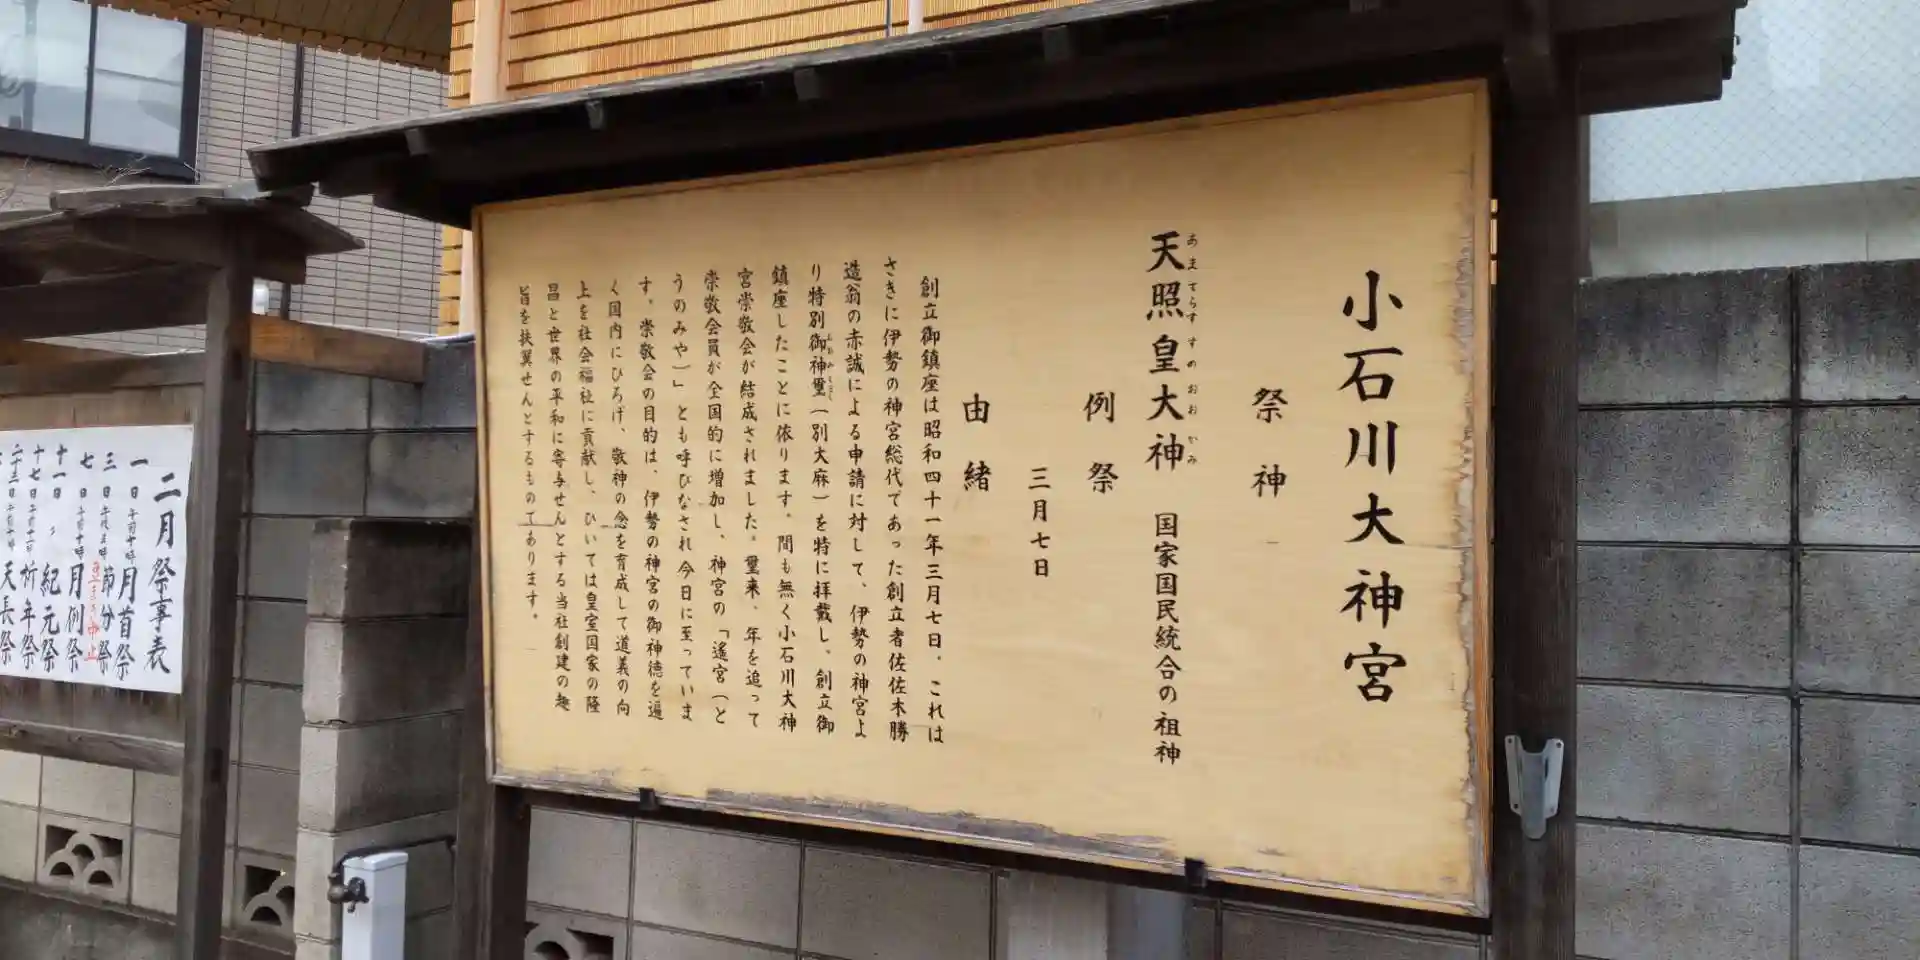 小石川大神宮
祭神
あまてらすすめおおかみ
天照皇大神 国家国民統合の祖神
例祭
三月七日
由緒
創立御鎮座は昭和四十一年三月七日。これは
さきに伊勢の神宮総代であった創立者佐佐木勝
造翁の赤誠による申請に対して、伊勢の神宮よ
り特別御神璽(別大麻)を特に拝戴し、創立御
鎮座したことに依ります。間も無く小石川大神
宮崇敬会が結成されました。爾来、年を追って
崇敬会員が全国的に増加し、神宮の「遙宮(と
うのみや)」とも呼びなされ今日に至っていま
す。崇敬会の目的は、伊勢の神宮の御神徳を遍
く国内にひろげ、敬神の念を育成して道義の向
上を社会福祉に貢献し、ひいては皇室国家の隆
昌と世界の平和に寄与せんとする当社創建の趣
旨を扶翼せんとするものであります。
二月祭事表
一日 午前十時 月首祭
三日 節分祭
七日 午前十時 月例祭
十一日 〃 紀元祭
十七日 午前十一時 祈年祭
二十三日 午前十時 天長祭